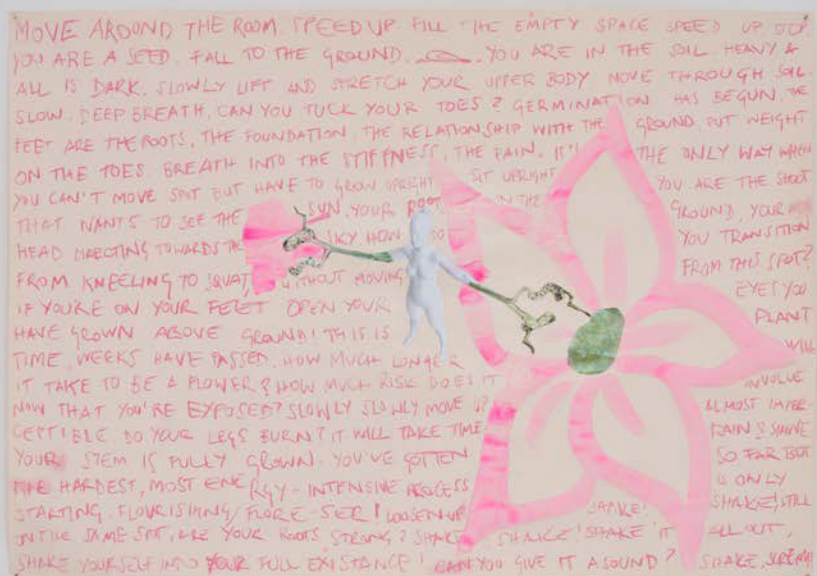 MOVE AROUND THE ROOM. SPEED UP. FILL THE EMPTY SPACE SPEED UP STOP.
YOU ARE A SEED. FALL TO THE GROUND. YOU ARE IN THE SOIL HEAVY &
ALL IS DARK. SLOWLY LIFT AND STRETCH YOUR UPPER BODY MOVE THROUGH SOIL.
SLOW. DEEP BREATH, CAN YOU TUCK YOUR TOES? GERMINATION HAS BEGUN. THE
FEET ARE THE ROOTS, THE FOUNDATION, THE RELATIONSHIP WITH THE GROUND. PUT WEIGHT
ON THE TOES. BREATH INTO THE STIFFNESS, THE PAIN. IT' THE ONLY WAY WHEN
YOU CAN'T MOVE SPOT BUT HAVE TO GROW UPRIGHT SIT UPRIGHT YOU ARE THE SHOOT
THAT WANTS TO SEE THE SUN. YOUR ROOT IN THE GROUND, YOUR
HEAD DIRECTING TOWARDS THE SKY HOW DO YOU TRANSITION
FROM KNEELING TO SQUAT, WITHOUT MOVING FROM THIS SPOT?
IF YOU'RE ON YOUR FEET OPEN YOUR EYES YOU
HAVE GROWN ABOVE GROUND! THIS IS PLANT
TIME, WEEKS HAVE PASSED. HOW MUCH LONGER WILL
IT TAKE TO BE A FLOWER? HOW MUCH RISK DOES IT INVOLVE
NOW THAT YOU'RE EXPOSED? SLOWLY SLOWLY MOVE UP ALMOST IMPER-
CEPTIBLE. DO YOUR LEGS BURN? IT WILL TAKE TIME RAIN & SHINE
YOUR STEM IS FULLY GROWN. YOU'VE GOTTEN SO FAR BUT
THE HARDEST, MOST ENERGY-INTENSIVE PROCESS IS ONLY
STARTING. FLOURISHING/FLORE-SER! LOOSEN UP SHAKE! SHAKE! STILL
ON THE SAME SPOT, ARE YOUR ROOTS STRONG? SHAKE, SHAKE! SHAKE IT ALL OUT,
SHAKE YOURSELF INTO YOUR FULL EXISTANCE! CAN YOU GIVE IT A SOUND? SHAKE,